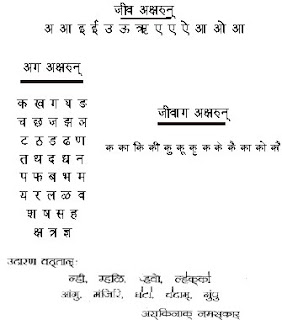 जीव अक्षरुन्
अ आ इ ई उ ऊ ऋ ए ए ऐ आ ओ आ
अग अक्षरुन्
क ख ग घ ङ
च छ ज झ ञ
ट ठ ड ढ ण
त थ द ध न
प फ ब भ म
य र ल ळ व
श ष स ह
क्ष त्र ज्ञ
जीवाग अक्षरुन्
क का कि की कु कू कृ क के कै का को कौ
उदारण
न्ही, म्हळि,
मंजिरि, घंटा, गुंपु
अस्किनाक् नमस्कार्